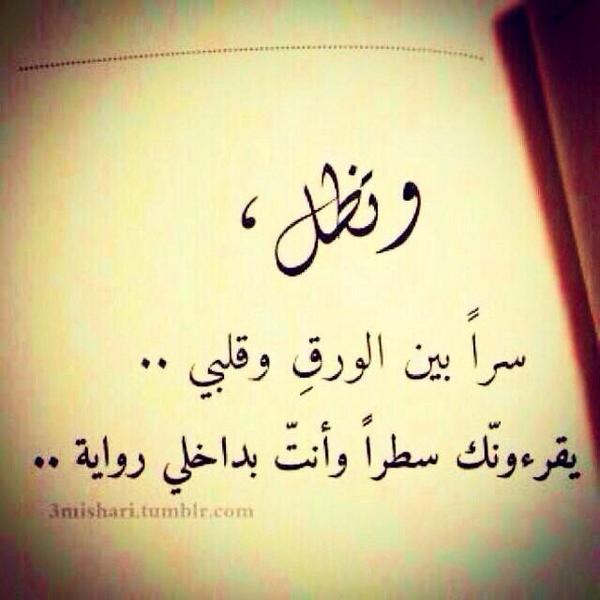 وتظل ،
سراً بين الورقِ وقلبي ..
يقرءونّك سطراً وأنتّ بداخلي رواية ..
3mishari.tumblr.com